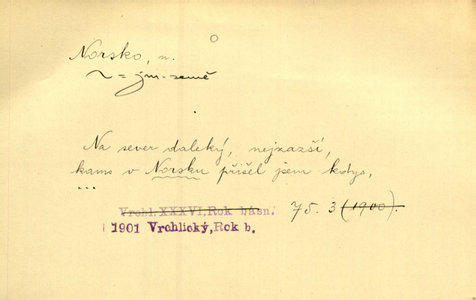 Norsko, n.
~ = jm. země
Na sever daleký, nejzazší,
kams v Norsku přišel jsem kdys,
...
Vrchl. XXXVI, Rok básn. 75. 3 (1900).
1901 Vrchlický, Rok b.